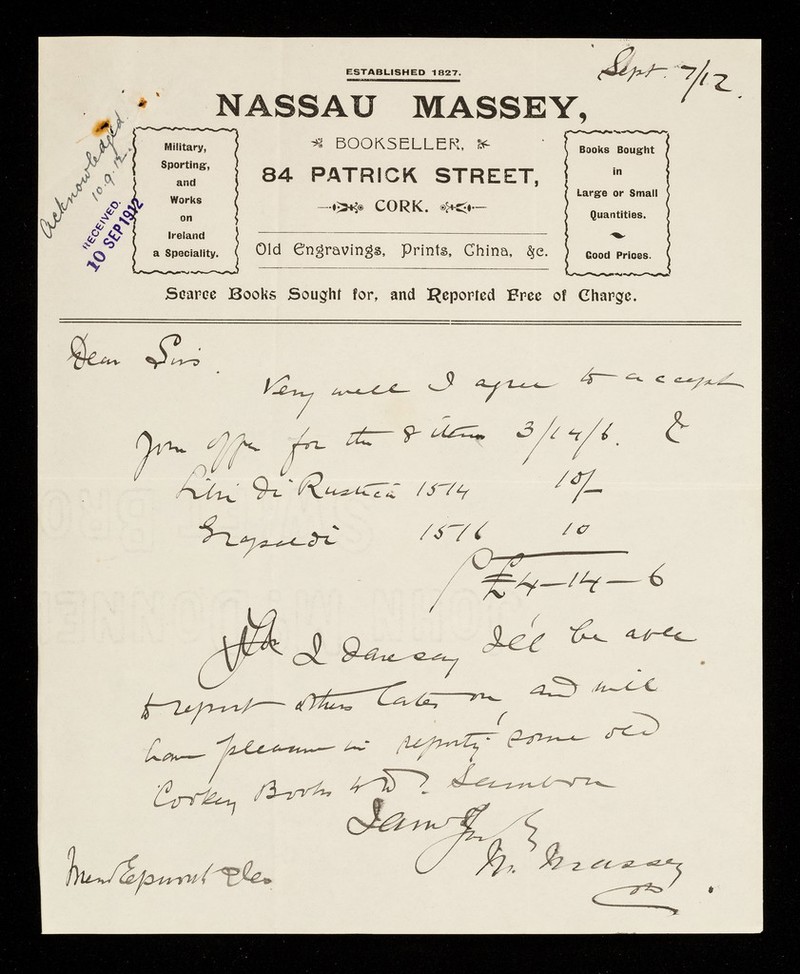 ESTABLISHED 1827.
Sept. 7/12.
NASSAU MASSEY,
BOOKSELLER,
84 PATRICK STREET,
CORK.
Old Engravings, Prints, China, &c.
Military,
Sporting,
and
Works
on
Ireland
a Speciality.
Books Bought
in
Large or Small
Quantities.
Good Prices.
Scarce Books Sought for, and Reported Free of Charge.
Acknowledged
10.9.12.
RECEIVED.
10 SEP 1912
Dear Sirs.
Very well I agree to accept
your offer for the 8 items 3/14/6. &
Libri di Rustica 1514 10/-
Grapaldi 1516 10
£4-14-6
I daresay I'll be able
to report others later on, and will
have pleasure in reporting some old
Cookery Books to Dr. Sambon
I am Yrs
N. Massey
Epworth &Co